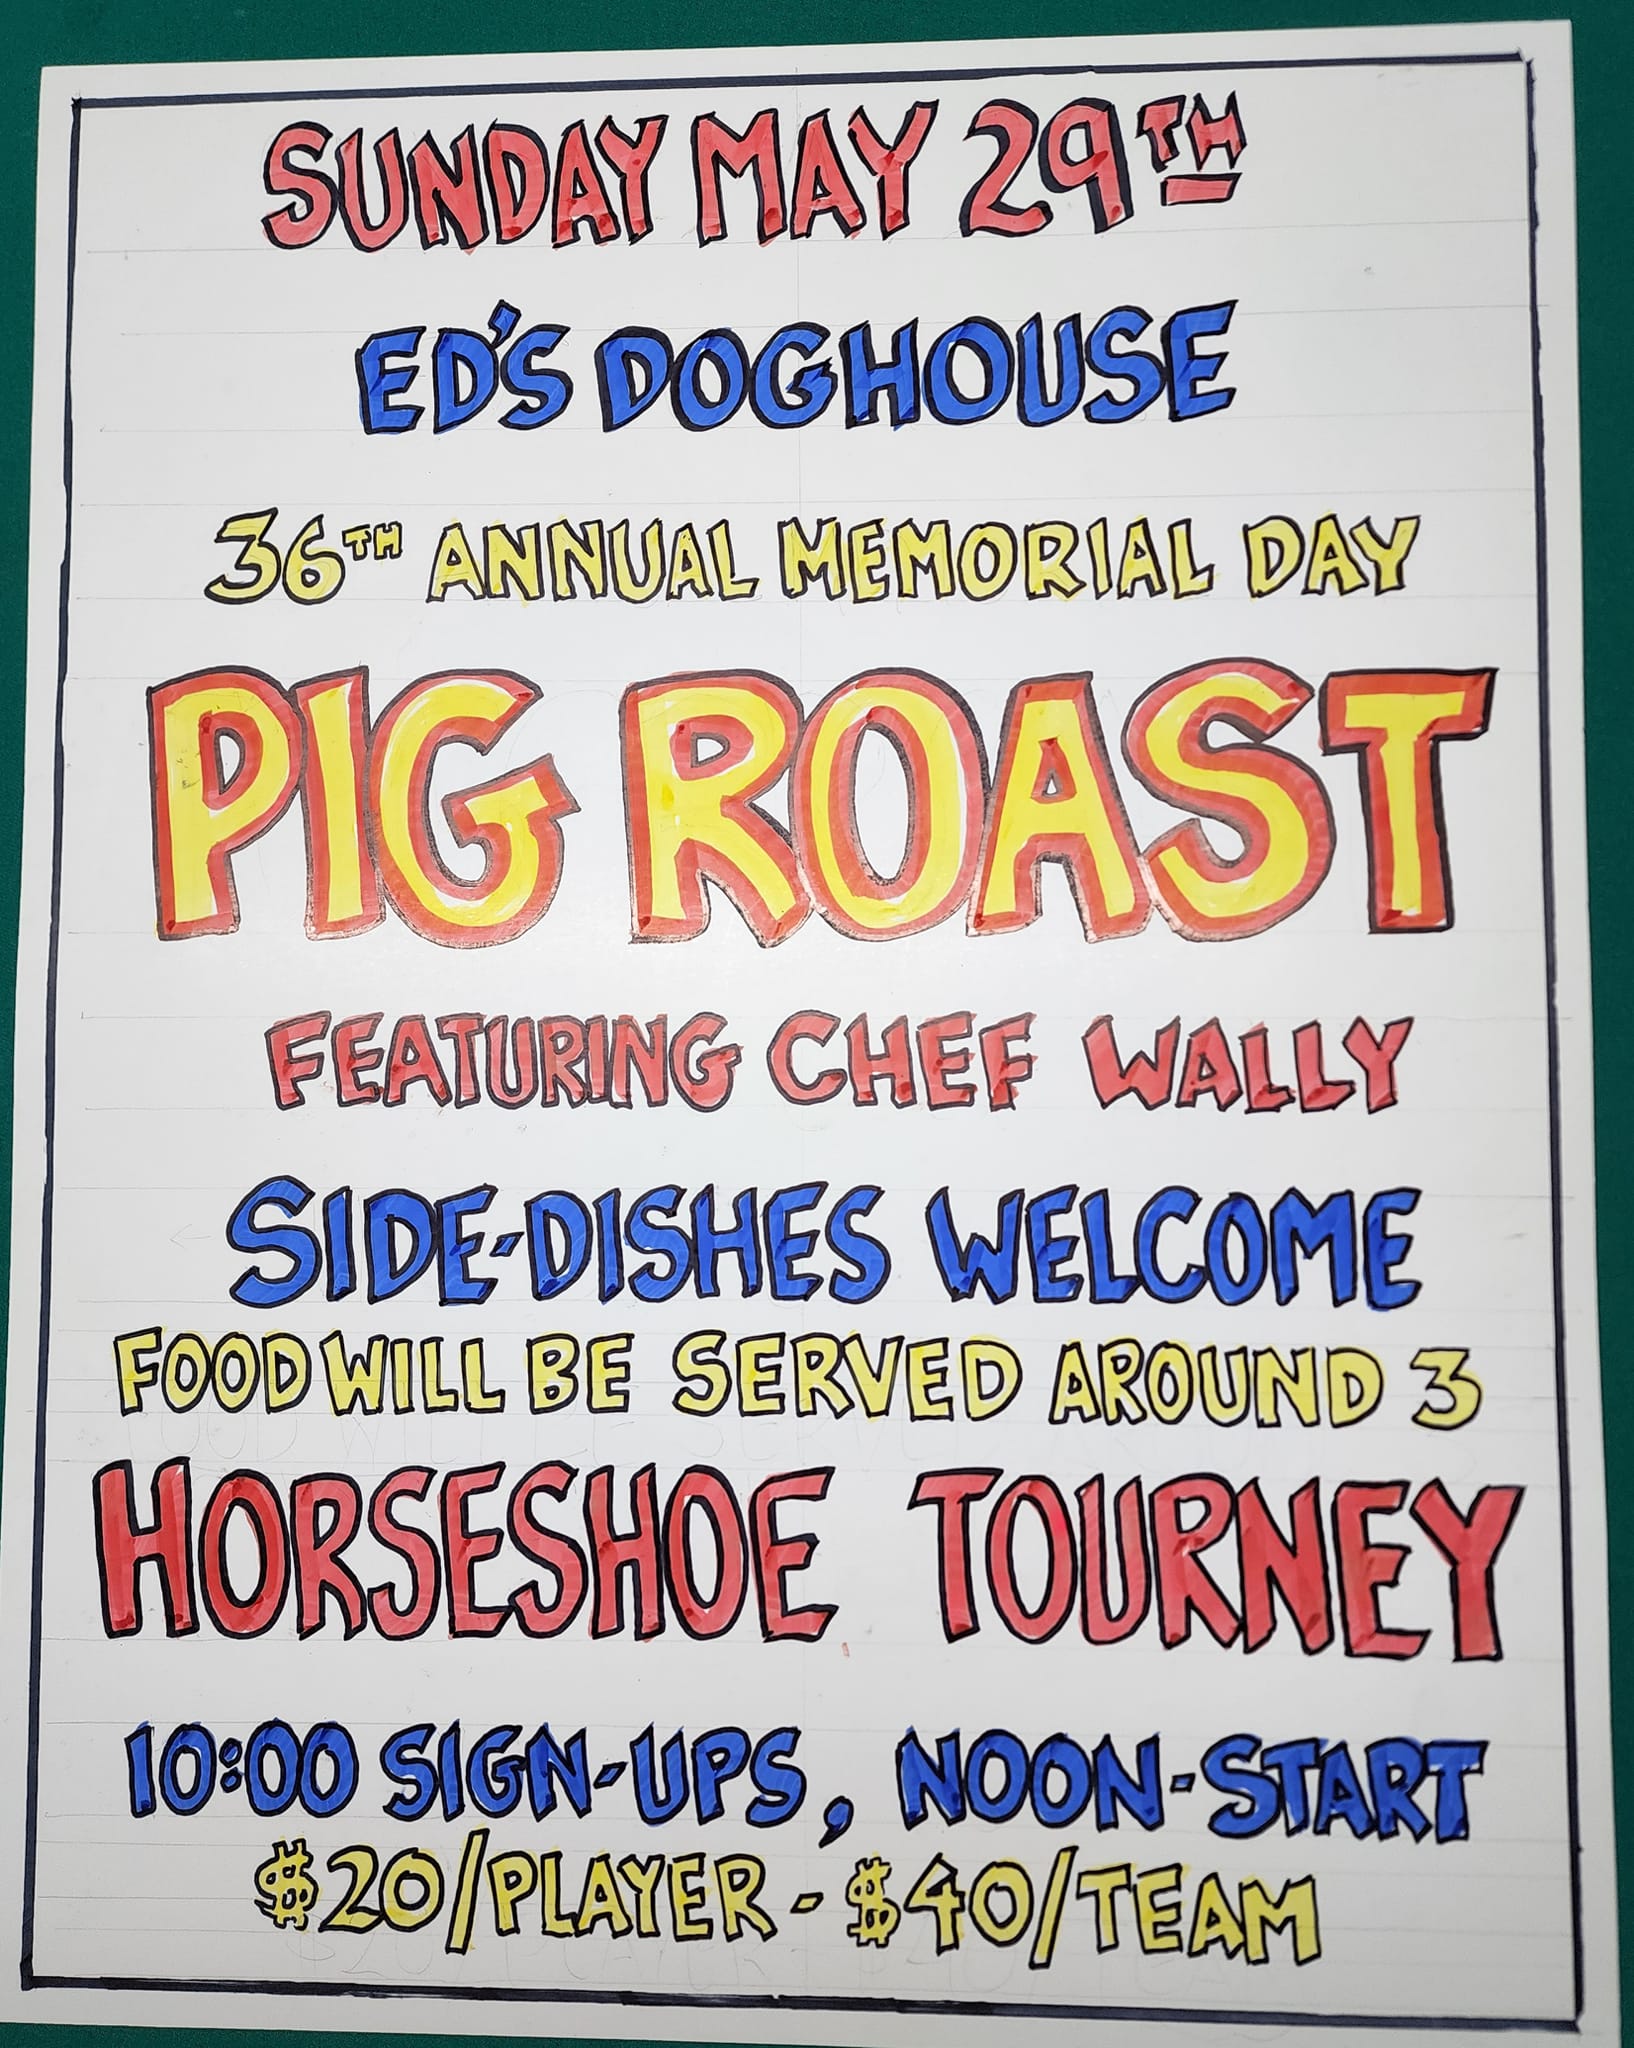 SUNDAY MAY 29TH
ED'S DOGHOUSE
36TH ANNUAL MEMORIAL DAY
PIG ROAST
FEATURING CHEF WALLY
SIDE-DISHES WELCOME
FOOD WILL BE SERVED AROUND 3
HORSESHOE TOURNEY
10:00 SIGN-UPS, NOON-START
$20/PLAYER - $40/TEAM